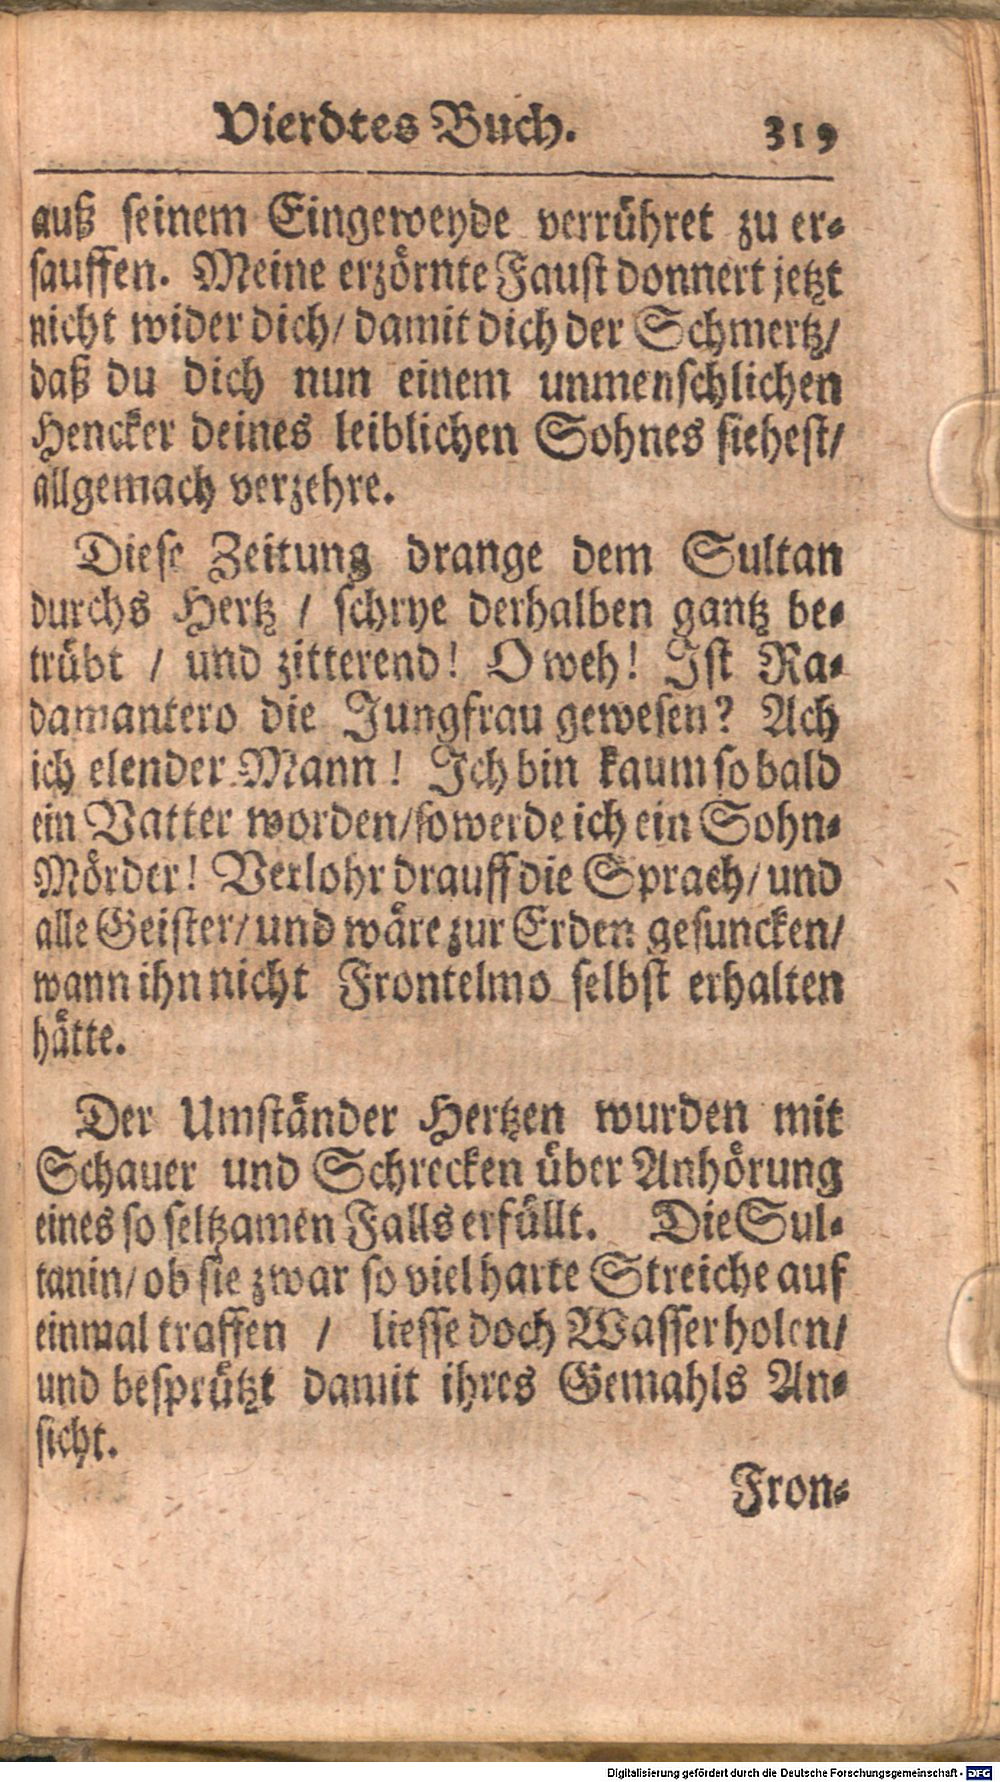 Vierdtes Buch. 319
auß seinem Eingeweyde verrühret zu er-
sauffen. Meine erzörnte Faust donnert jetzt
nicht wider dich/ damit dich der Schmertz/
daß du dich nun einem unmenschlichen
Hencker deines leiblichen Sohnes siehest/
allgemach verzehre.
Diese Zeitung drange dem Sultan
durchs Hertz / schrye derhalben gantz be-
trübt / und zitterend! O weh! Ist Ra-
damantero die Jungfrau gewesen? Ach
ich elender Mann! Ich bin kaum so bald
ein Vatter worden/ so werde ich ein Sohn-
Mörder! Verlohr drauff die Sprach/ und
alle Geister/ und wäre zur Erden gesuncken/
wann ihn nicht Frontelmo selbst erhalten
hätte.
Der Umständer Hertzen wurden mit
Schauer und Schrecken über Anhörung
eines so seltzamen Falls erfüllt. Die Sul-
tanin/ ob sie zwar so viel harte Streiche auf
einmal traffen / liesse doch Wasser holen/
und besprützt damit ihres Gemahls An-
sicht.
Fron-
Digitalisierung gefördert durch die Deutsche Forschungsgemeinschaft - DFG